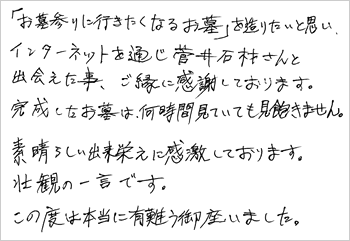 「お墓参りに行きたくなるお墓」を造りたいと思い、
インターネットを通じ菅井石材さんと
出会えた事、ご縁に感謝しております。
完成したお墓は、何時間見ていても見飽きません。
素晴らしい出来栄えに感激しております。
壮観の一言です。
この度は本当に有難う御座いました。